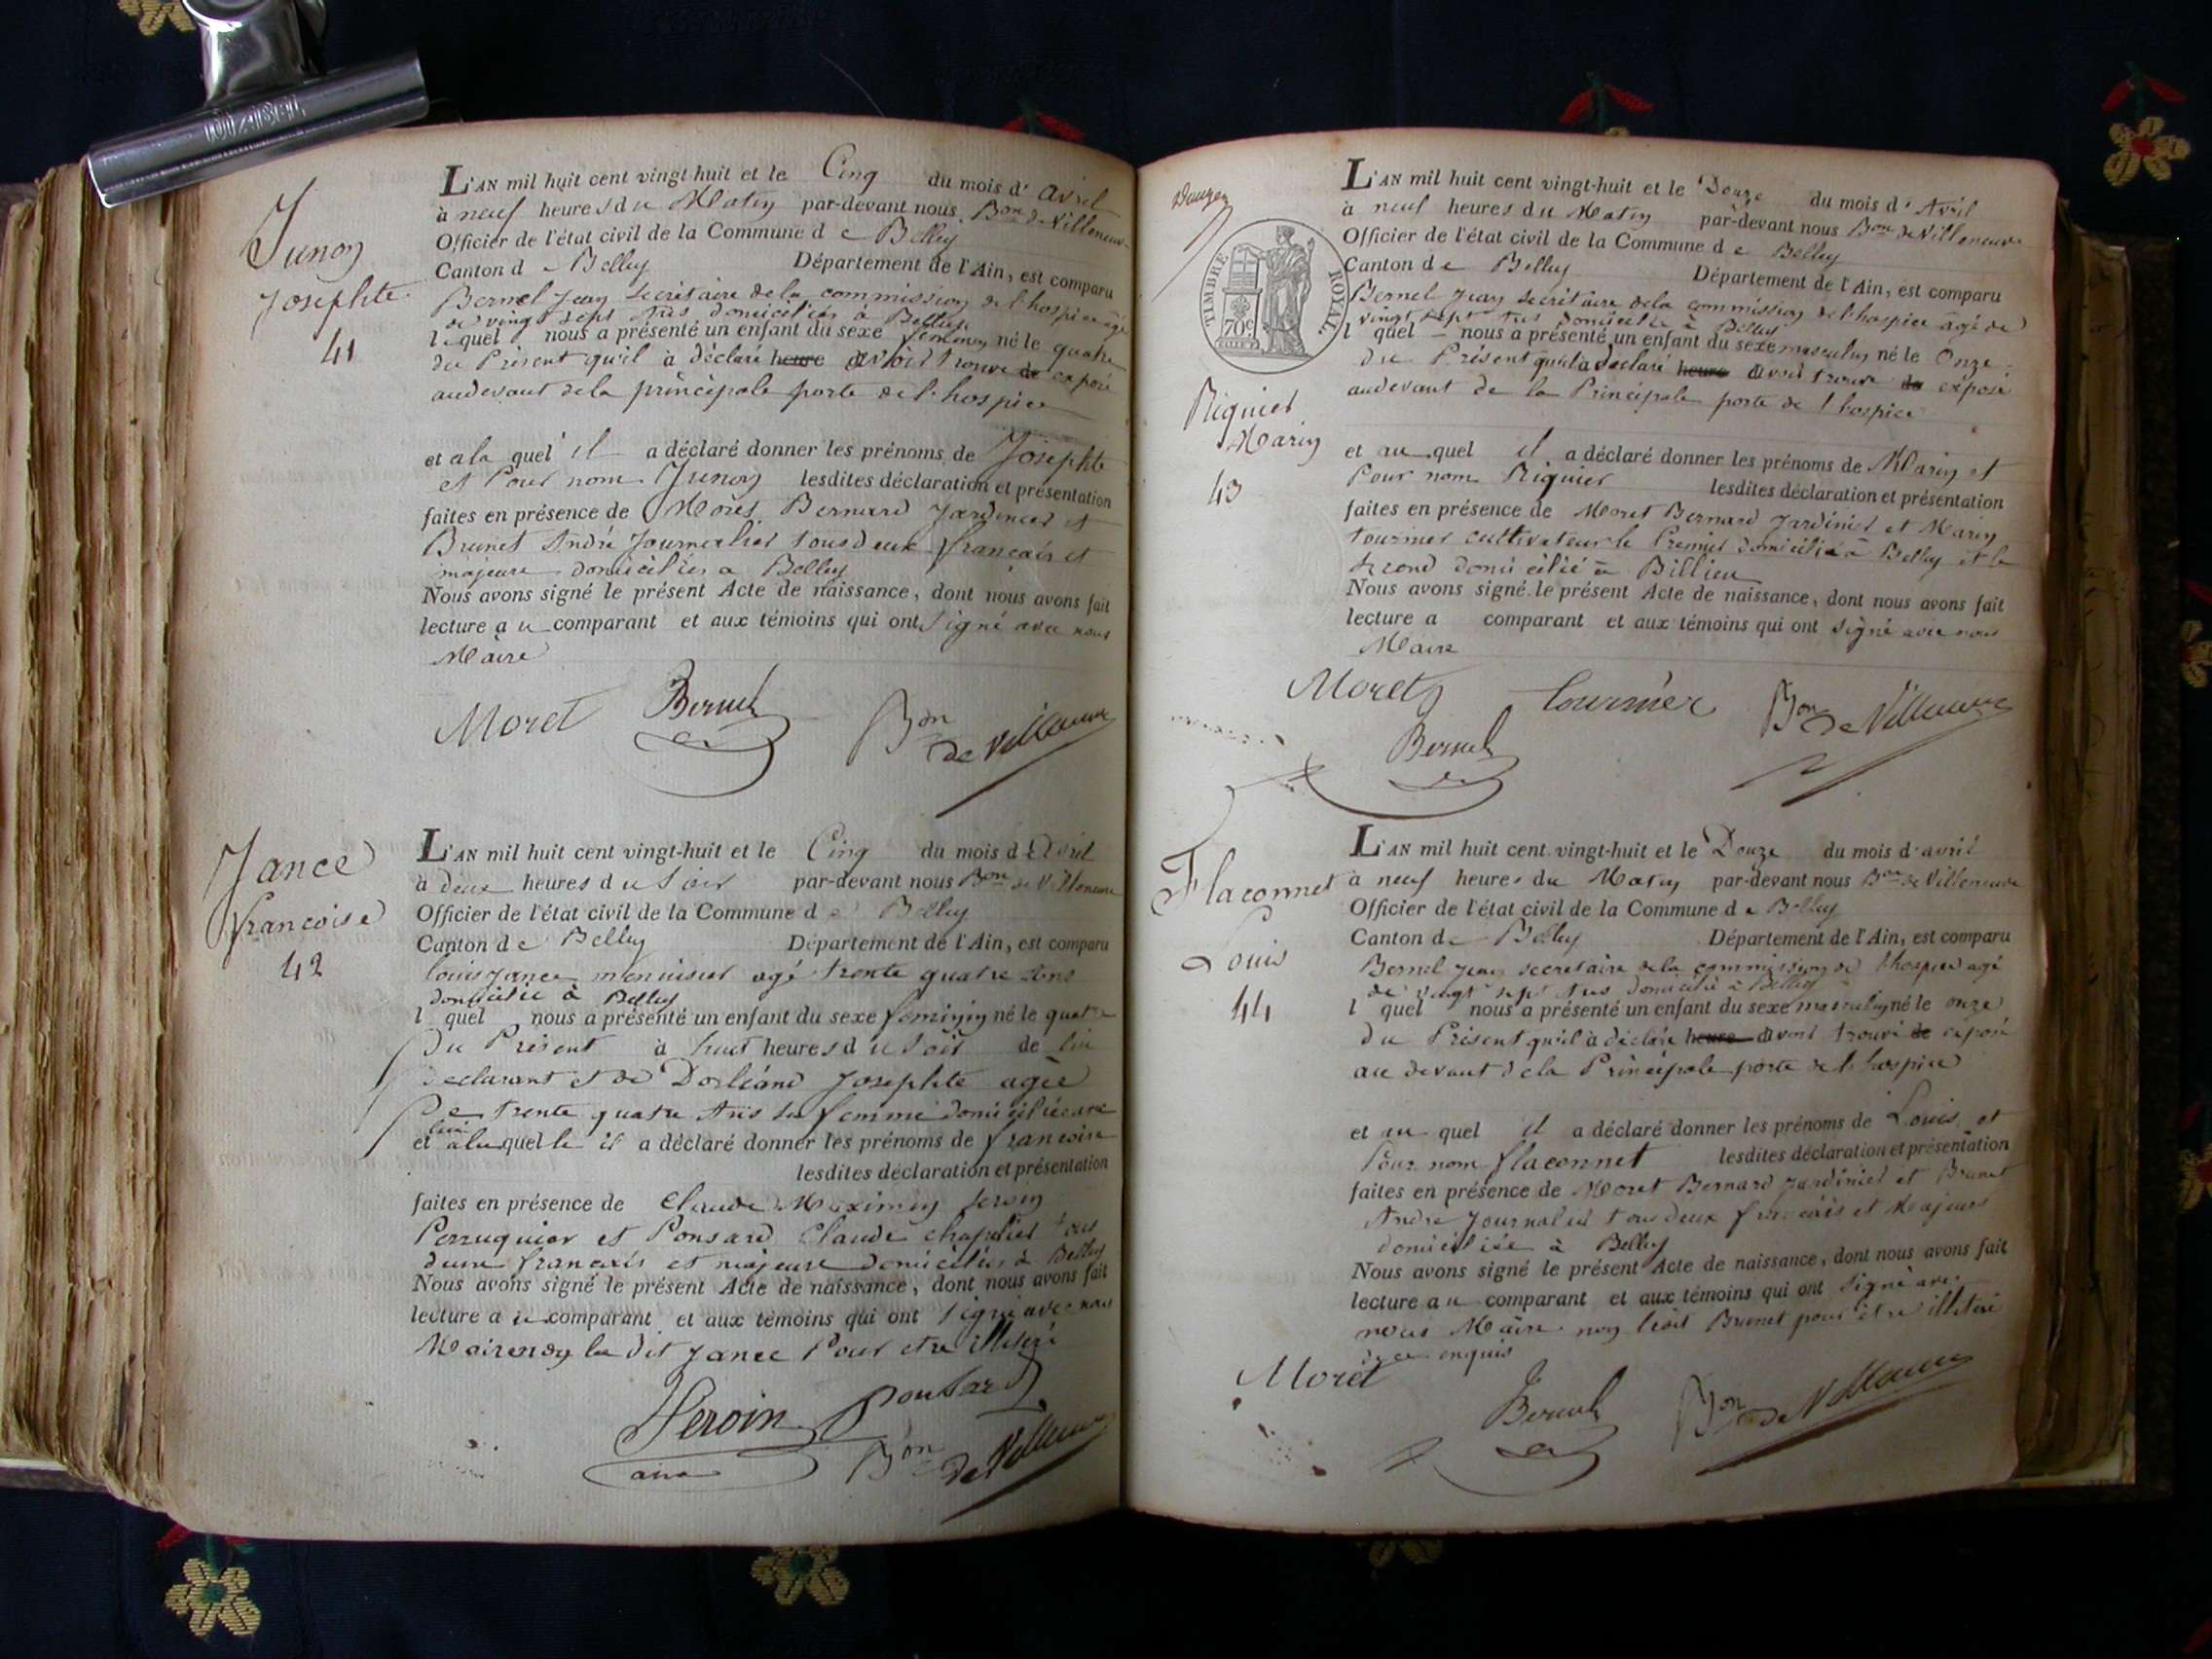 Junon
Josephte
41
L'AN mil huit cent vingt-huit et le Cinq du mois d'avril
à neuf heures du Matin par-devant nous Bon de Villeneuve
Officier de l'état civil de la Commune de Belley
Canton de Belley Département de l'Ain, est comparu
Bernel Jean Secrétaire de la commission de l'hospice âgé
de vingt sept ans domicilié à Belley
lequel nous a présenté un enfant du sexe feminin né le quatre
du Présent qu'il à déclaré heure avoir trouvé de exposé
au devant de la principale porte de l'hospice
et a la quel il a déclaré donner les prénoms de Josephte
et Pour nom Junon lesdites déclaration et présentation
faites en présence de Moret Bernard Jardinier et
Brunet André Journalier tous deux français et
majeurs domiciliés a Belley
Nous avons signé le présent Acte de naissance, dont nous avons fait
lecture au comparant et aux témoins qui ont Signé avec nous
Maire
Moret Bernel Bon de Villeneuve
Jance
Francoise
42
L'AN mil huit cent vingt-huit et le Cinq du mois d'Avril
à deux heures du Soir par-devant nous Bon de Villeneuve
Officier de l'état civil de la Commune de Belley
Canton de Belley Département de l'Ain, est comparu
Louis Jance menuisier agé trente quatre Ans
domicilié à Belley
l quel nous a présenté un enfant du sexe feminin né le quatre
du Présent à huit heures du Soir de lui
declarant et de Dorléand Josephte agée
De trente quatre Ans sa femme domiciliée avec
lui
et à la quelle il a déclaré donner les prénoms de francoise
lesdites déclaration et présentation
faites en présence de Claude Maximin Feroin
Perruquier et Ponsard Claude chapelier tous
deux français et majeurs domiciliés à Belley
Nous avons signé le présent Acte de naissance, dont nous avons fait
lecture au comparant et aux témoins qui ont Signé avec nous
Maire non le dit Jance Pour etre illiteré
Feroin Ponsard
Bon de Villeneuve
Douze
TIMBRE ROYAL
70c
Riquier
Marin
43
L'AN mil huit cent vingt-huit et le Douze du mois d'Avril
à neuf heures du Matin par-devant nous Bon de Villeneuve
Officier de l'état civil de la Commune de Belley
Canton de Belley Département de l'Ain, est comparu
Bernel Jean Secrétaire de la commission de l'hospice âgé de
vingt sept ans domicilié à Belley
l quel nous a présenté un enfant du sexe masculin né le Onze
du Présent qu'il à declaré heure avoir trouvé de exposé
au devant de la Principale porte de l'hospice
et au quel il a déclaré donner les prénoms de Marin et
Pour nom Riquier lesdites déclaration et présentation
faites en présence de Moret Bernard Jardinier et Marin
Tournier cultivateur le Premier domicilié à Belley et le
Second domicilié à Billieu
Nous avons signé le présent Acte de naissance, dont nous avons fait
lecture a comparant et aux témoins qui ont signé avec nous
Maire
Moret Tournier Bon de Villeneuve
Bernel
Flaconnet
Louis
44
L'AN mil huit cent vingt-huit et le Douze du mois d'avril
à neuf heures du Matin par-devant nous Bon de Villeneuve
Officier de l'état civil de la Commune de Belley
Canton de Belley Département de l'Ain, est comparu
Bernel Jean secretaire de la commission de l'hospice agé
de vingt sept Ans domicilié à Belley
l quel nous a présenté un enfant du sexe masculin né le onze
du Présent qu'il à déclaré heure avoir trouvé de exposé
au devant de la Principale porte de l'hospice
et au quel il a déclaré donner les prénoms de Louis et
Pour nom flaconnet lesdites déclaration et présentation
faites en présence de Moret Bernard Jardinier et Brunet
Andre Journalier tous deux francais et Majeurs
domiciliée à Belley
Nous avons signé le présent Acte de naissance, dont nous avons fait
lecture au comparant et aux témoins qui ont Signé avec
nous Maire non ledit Brunet pour être illiteré
de ce enquis
Moret Bernel Bon de Villeneuve